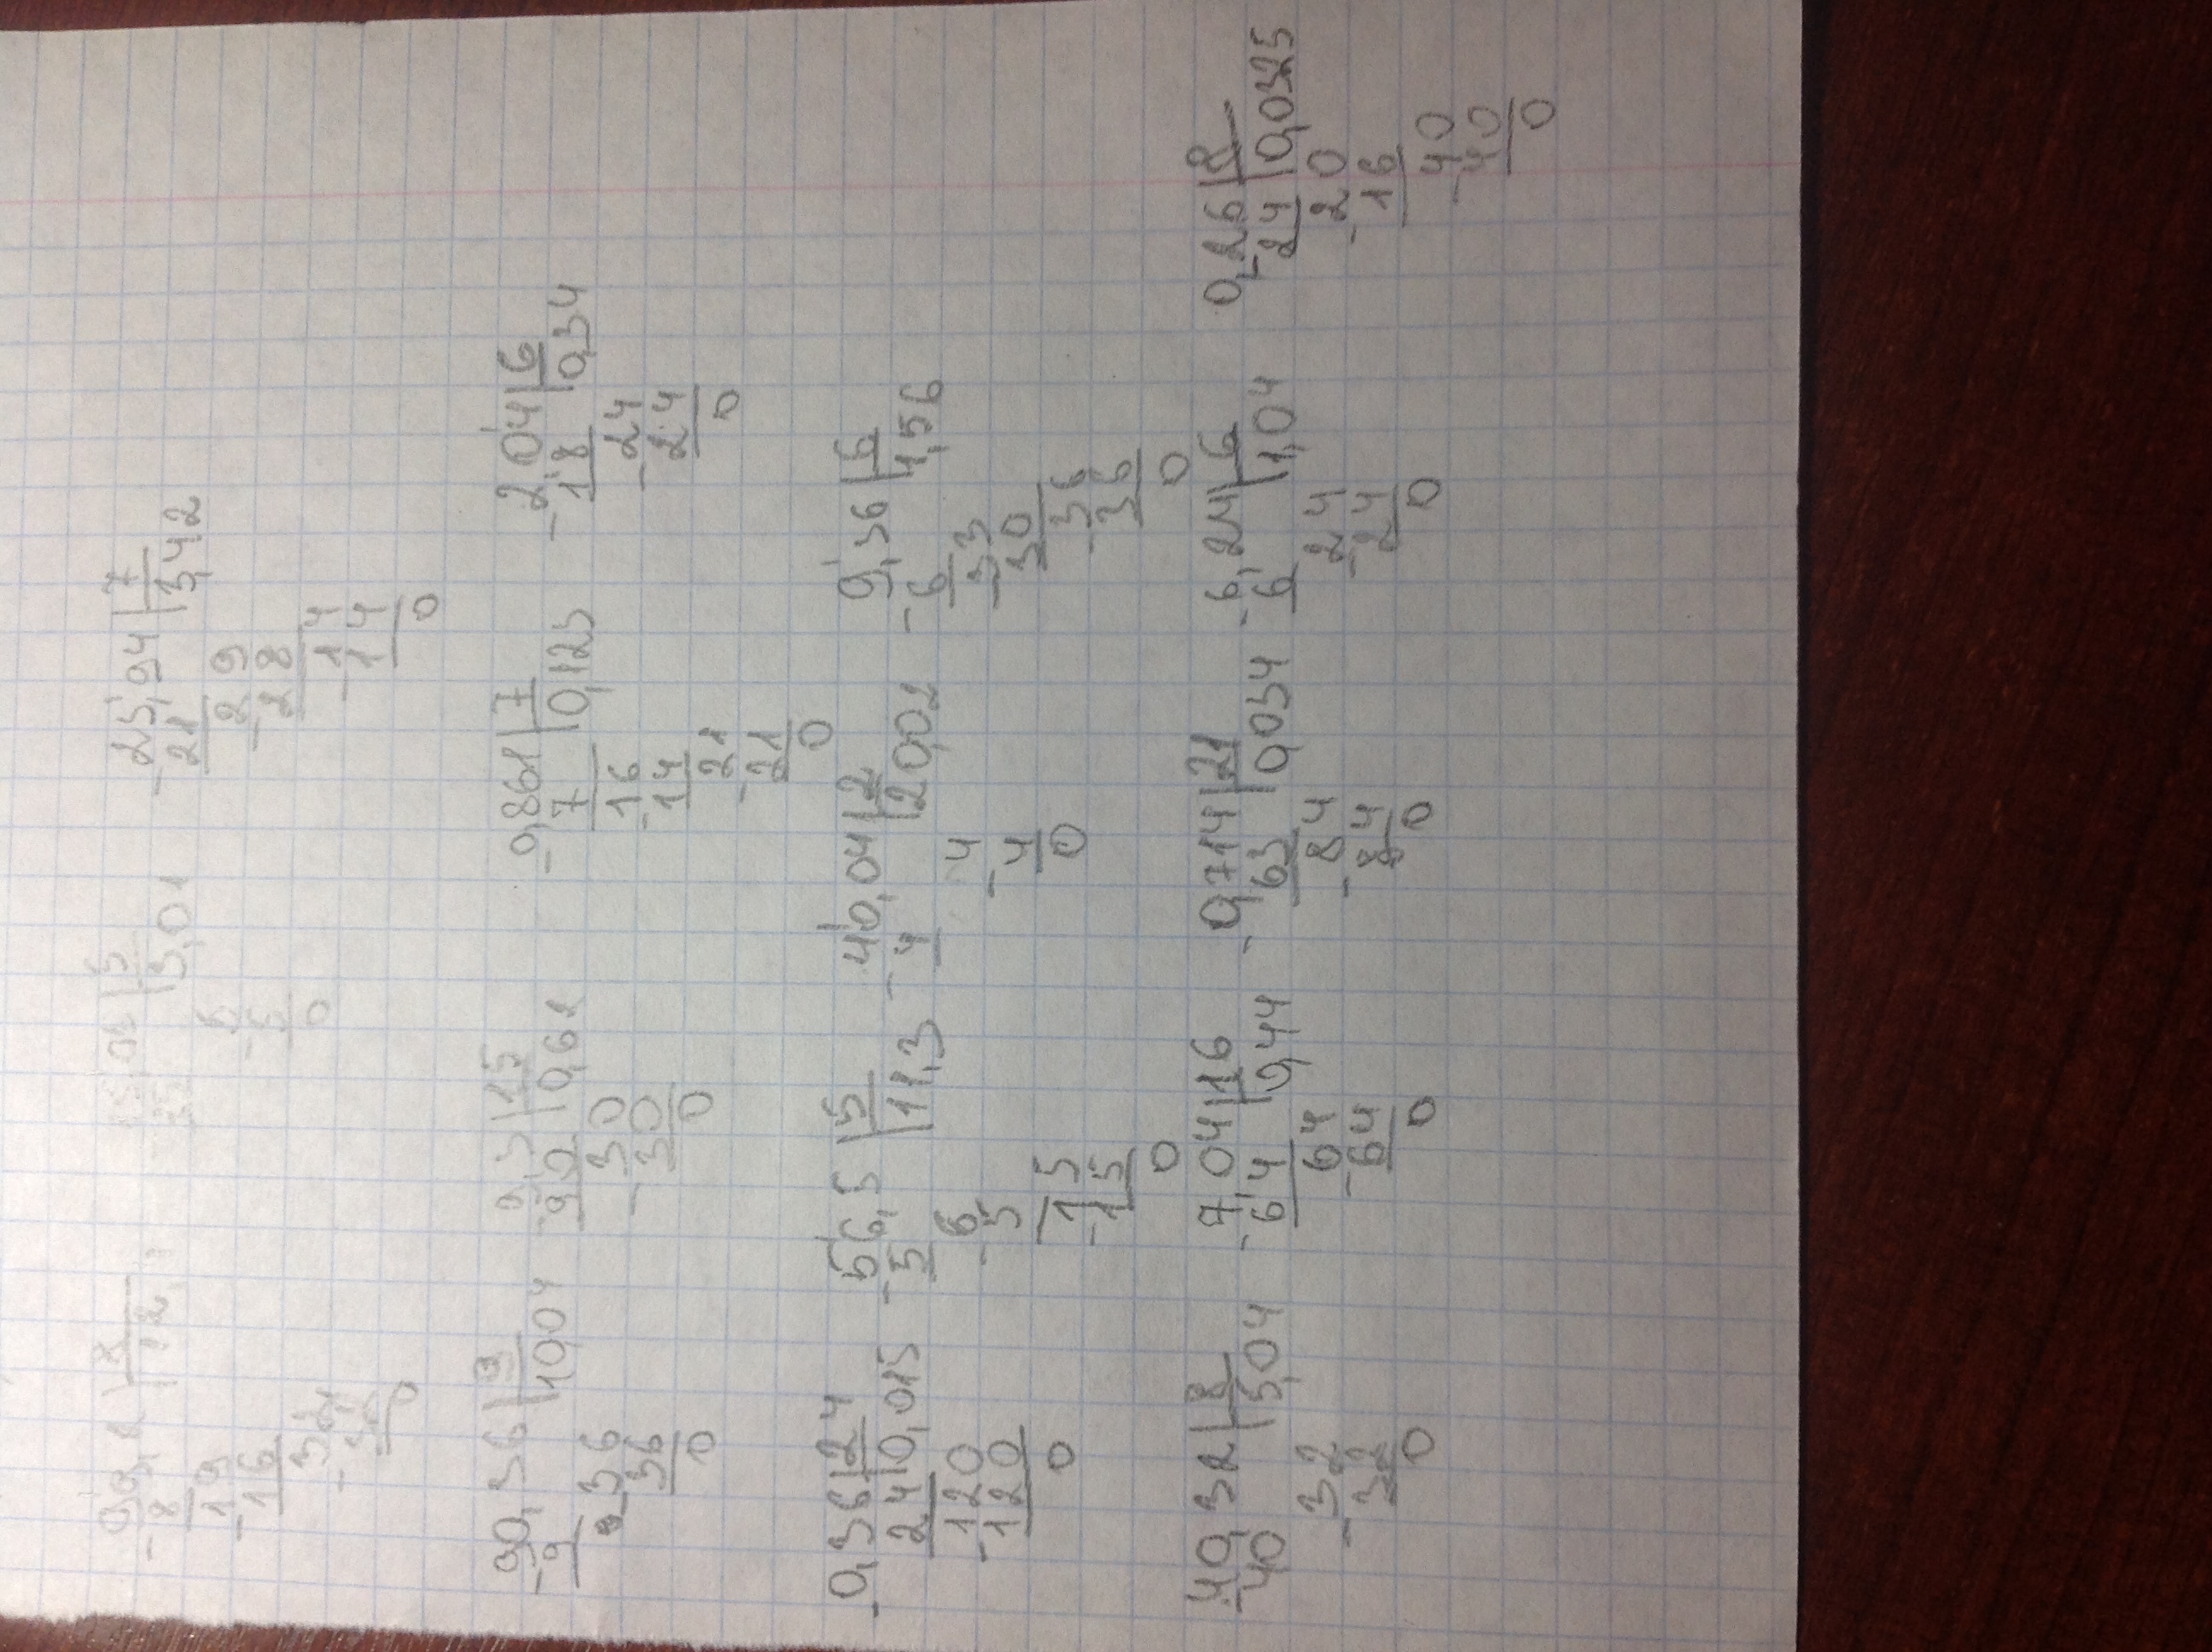 99,2 | 8
-8 | 12,
-19
-16
32
-32
0
15,05 | 5
15 | 3,01
-5
5
0
-23,94 | 7
21 | 3,42
-29
28
-14
14
0
-90,36 | 9
9 | 10,04
-36
36
0
9,3 | 15
90 | 0,62
-30
30
0
-0,861 | 7
7 | 0,123
-16
14
-21
21
0
-2,04 | 6
18 | 0,34
-24
24
0
-0,36 | 24
24 | 0,015
-120
120
0
-56,5 | 5
5 | 11,3
-6
5
-15
15
0
40,04 | 2
-4 | 20,02
-4
4
0
9,36 | 6
-6 | 1,56
-33
30
-36
36
0
40,32 | 8
-40 | 5,04
-32
32
0
-7,04 | 16
64 | 0,44
-64
64
0
-0,714 | 21
63 | 0,034
-84
84
0
-6,24 | 6
6 | 1,04
-24
24
0
0,26 | 8
-24 | 0,0325
-20
16
-40
40
0